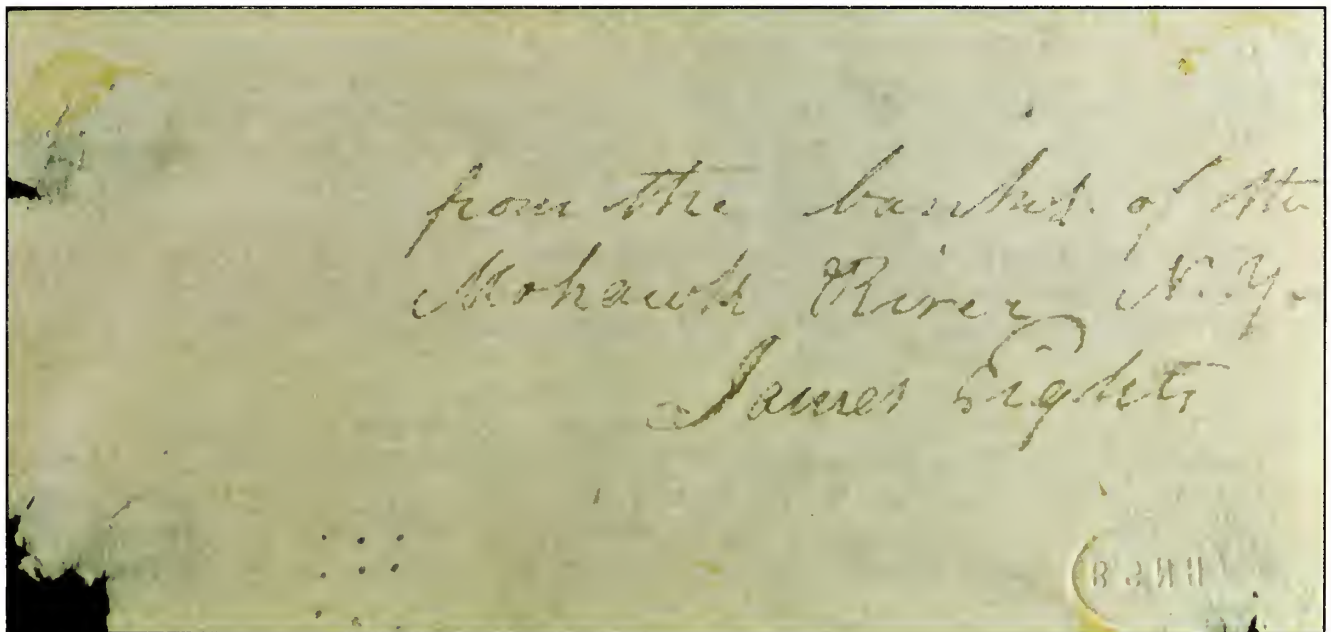 from the banks. of the
Mohawk River N.Y.
James Eights